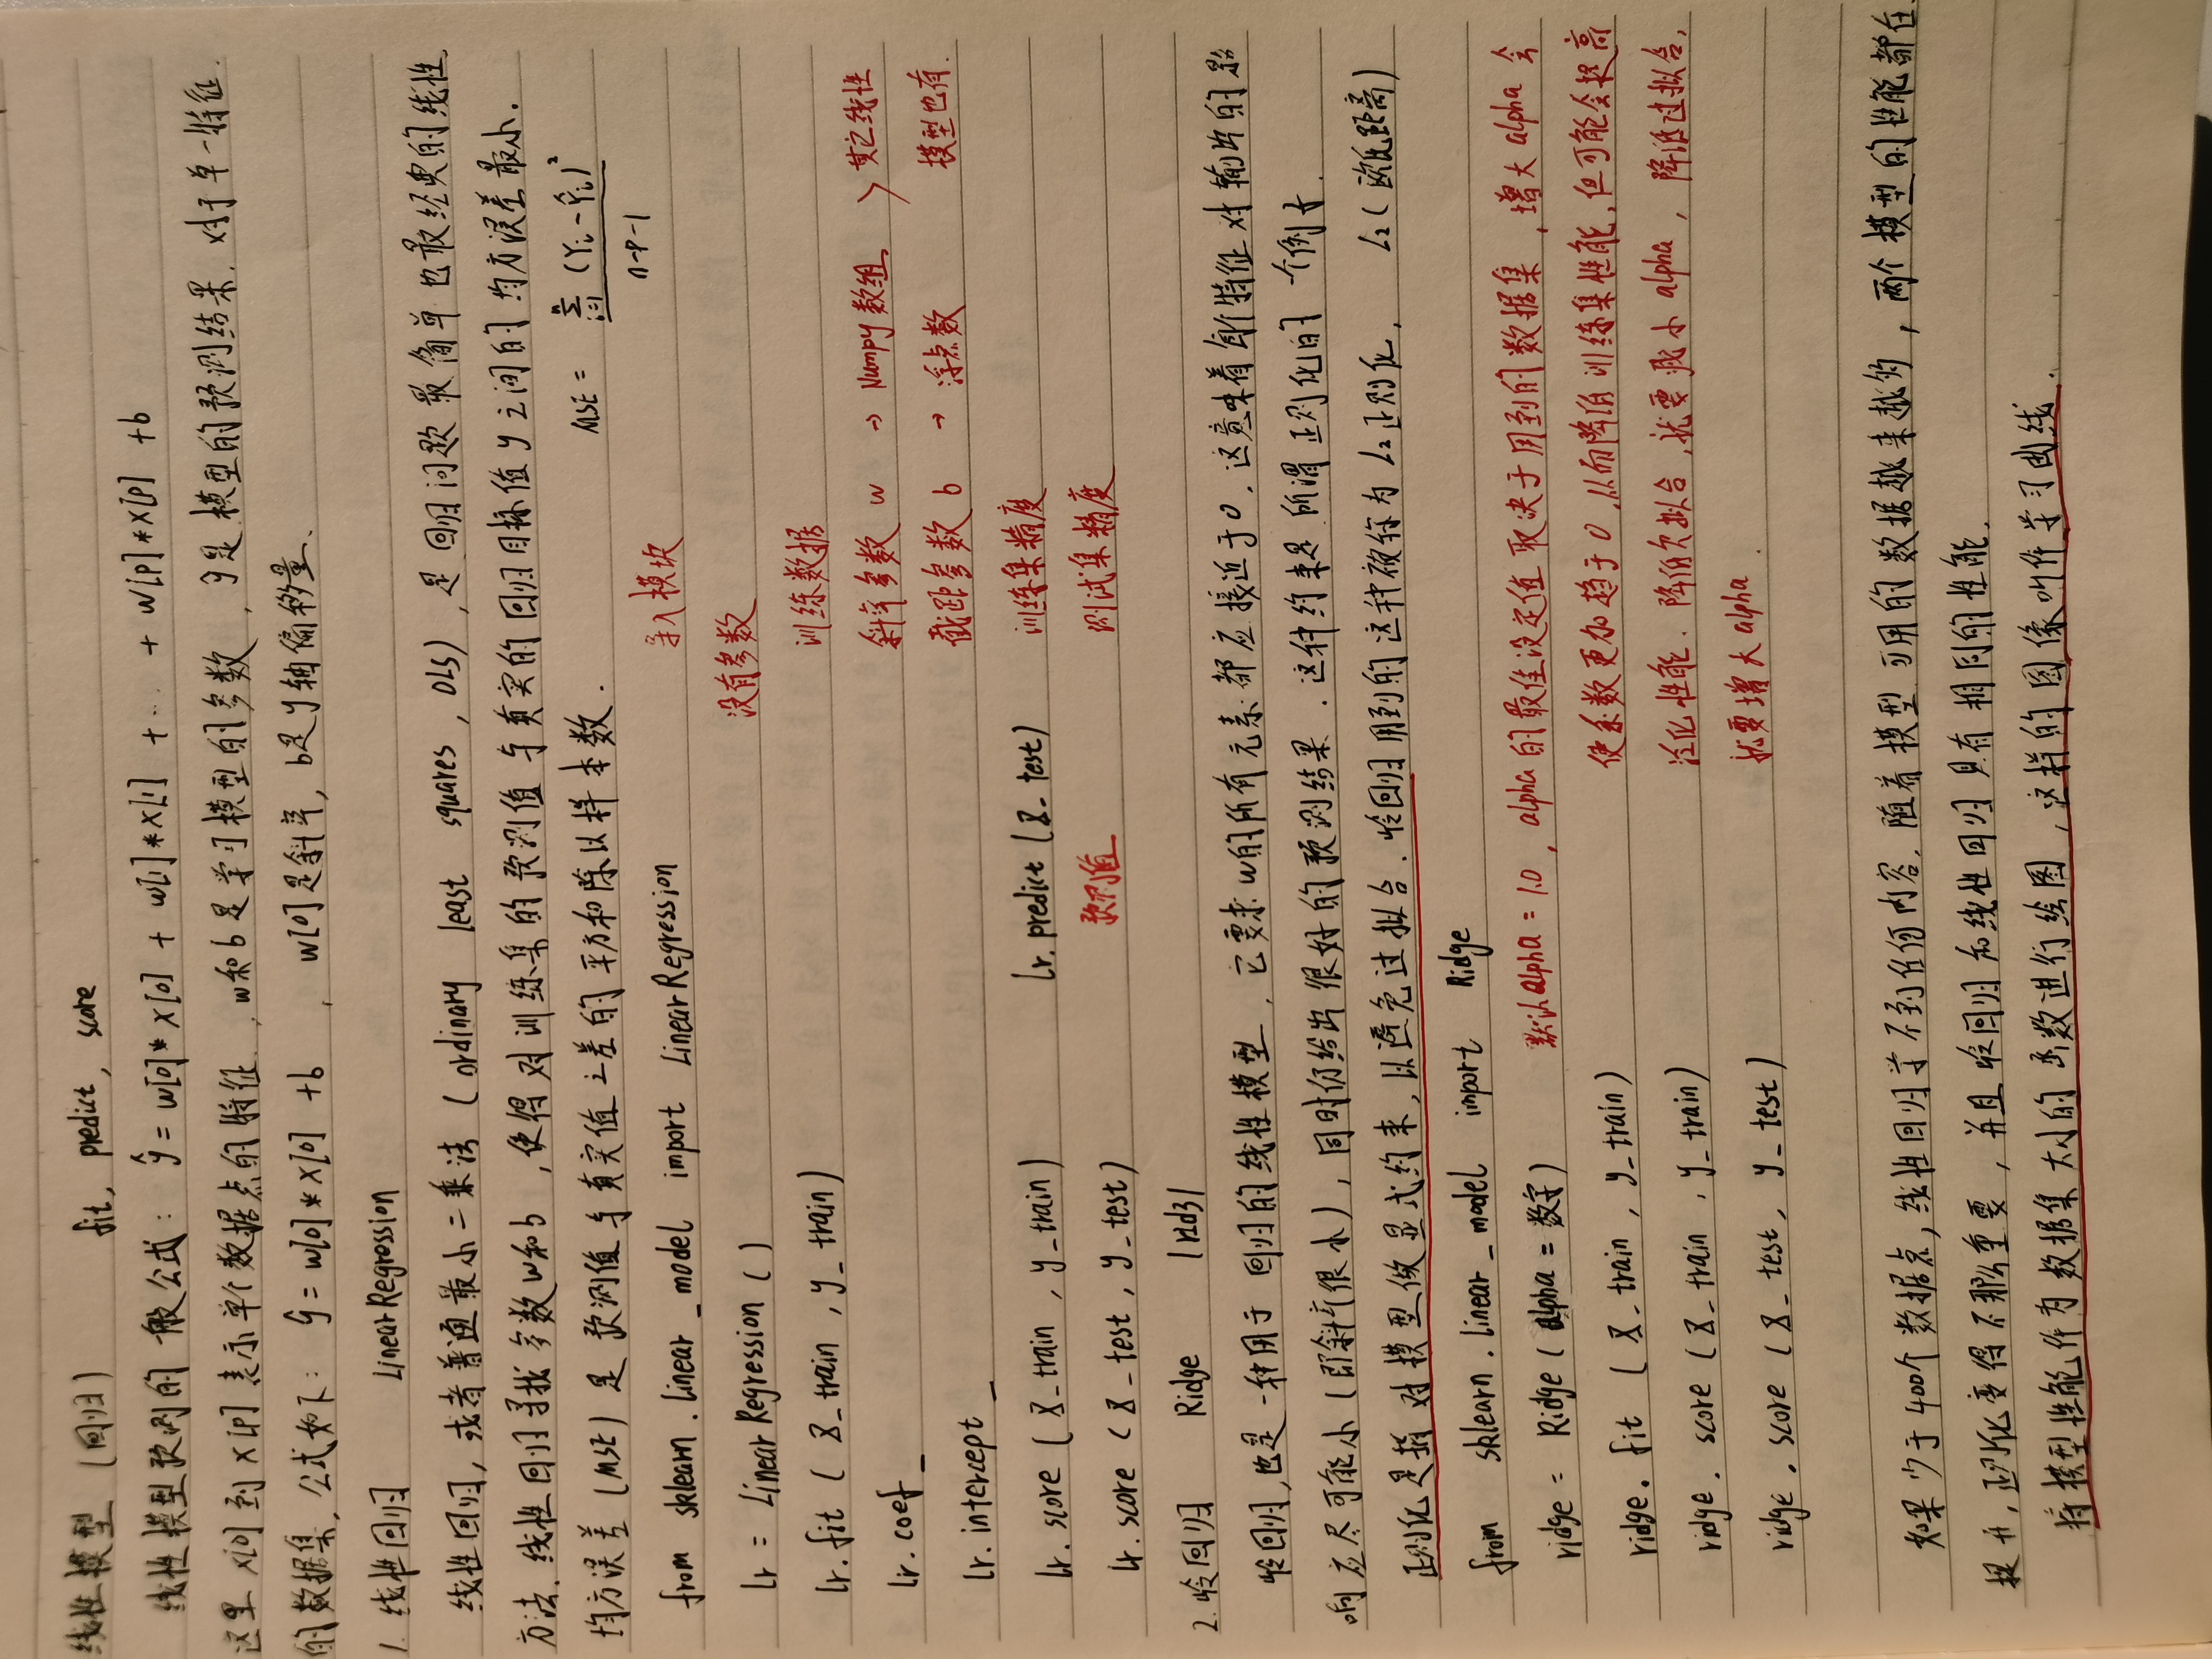 线性模型 (回归) fit, predict, score
线性模型预测的一般公式: ŷ = w[0]*x[0] + w[1]*x[1] + ... + w[p]*x[p] +b
这里 x[0]到 x[p] 表示单个数据点的特征, w和b是学习模型的参数, ŷ是模型的预测结果, 对于单一特征
的数据集, 公式如下: ŷ = w[0]*x[0] +b , w[0]是斜率, b是y轴偏移量.
1. 线性回归 LinearRegression
线性回归, 或者普通最小二乘法 (ordinary least squares, OLS), 是回归问题最简单也最经典的线性
方法. 线性回归寻找参数w和b, 使得对训练集的预测值与真实的回归目标值y之间的均方误差最小.
均方误差 (MSE) 是预测值与真实值之差的平方和除以样本数. MSE = Σ(i=1,n) (Yi-Ŷi)² / n-p-1
from sklearn.linear_model import LinearRegression 导入模块
lr = LinearRegression() 没有参数
lr.fit (X_train, y_train) 训练数据
lr.coef_ 斜率参数 w → Numpy数组 > 其它线性
lr.intercept_ 截距参数 b → 浮点数 模型也有.
lr.score (X_train, y_train) lr.predict (X_test) 训练集精度
lr.score (X_test, y_test) 预测值 测试集精度
2. 岭回归 Ridge
岭回归, 也是一种用于回归的线性模型, 它要求w的所有元素都应接近于0, 这意味着每个特征对输出的影
响应尽可能小 (即斜率很小), 同时仍给出很好的预测结果. 这种约束是所谓正则化的一个例子.
正则化是指对模型做显式约束, 以避免过拟合. 岭回归用到的这种被称为L2正则化. L2 (欧氏距离)
from sklearn.linear_model import Ridge
ridge = Ridge (alpha=数字) 默认alpha=1.0, alpha的最佳设定值取决于用到的数据集, 增大alpha会
ridge.fit (X_train, y_train) 使系数更加趋于0, 从而降低训练集性能, 但可能会提高
ridge.score (X_train, y_train) 泛化性能. 降低欠拟合, 就要减小alpha, 降低过拟合,
ridge.score (X_test, y_test) 就要增大alpha.
如果少于400个数据点, 线性回归学不到任何内容, 随着模型可用的数据越来越多, 两个模型的性能都在
提升, 正则化变得不那么重要, 并且岭回归和线性回归具有相同的性能.
将模型性能作为数据集大小的函数进行绘图, 这样的图像叫作学习曲线.